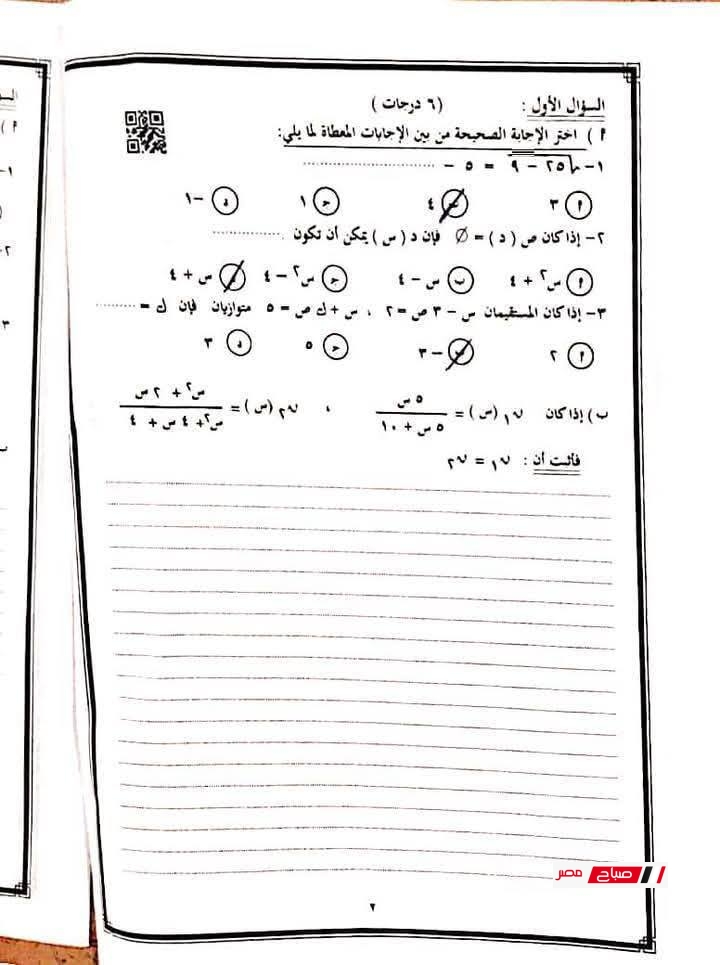 السؤال الأول : ( ٦ درجات )
أ ) اختر الإجابة الصحيحة من بين الإجابات المعطاة لما يلي:
١- √٢٥ − ٩ = ٥ − ....................
أ ٣ ب ٤ ج ١ د −١
٢- إذا كان ص ( د ) = ∅ فإن د ( س ) يمكن أن تكون ..............
أ س٢ + ٤ ب س − ٤ ج س٢ − ٤ د س + ٤
٣- إذا كان المستقيمان س − ٣ ص = ٢ ، س + ك ص = ٥ متوازيان فإن ك = ..........
أ ٢ ب −٣ ج ٥ د ٣
ب ) إذا كان ن١ (س) = ٥ س / ٥ س + ١٠ ، ن٢ (س) = س٢ + ٢ س / س٢ + ٤ س + ٤
فأثبت أن : ن١ = ن٢
صباح مصر
٢
السؤ
أ )
١-
٢-
٣
ب